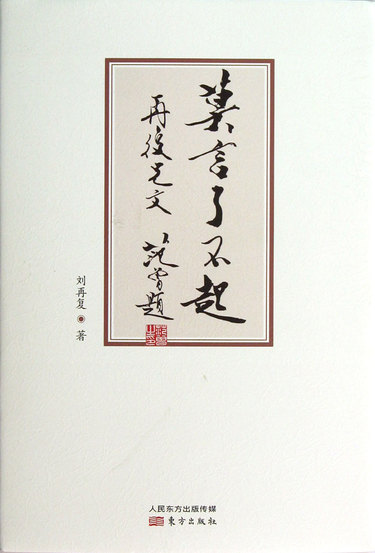 莫言了不起
再復兄文
范曾題
刘再复 著
人民东方出版传媒
东方出版社